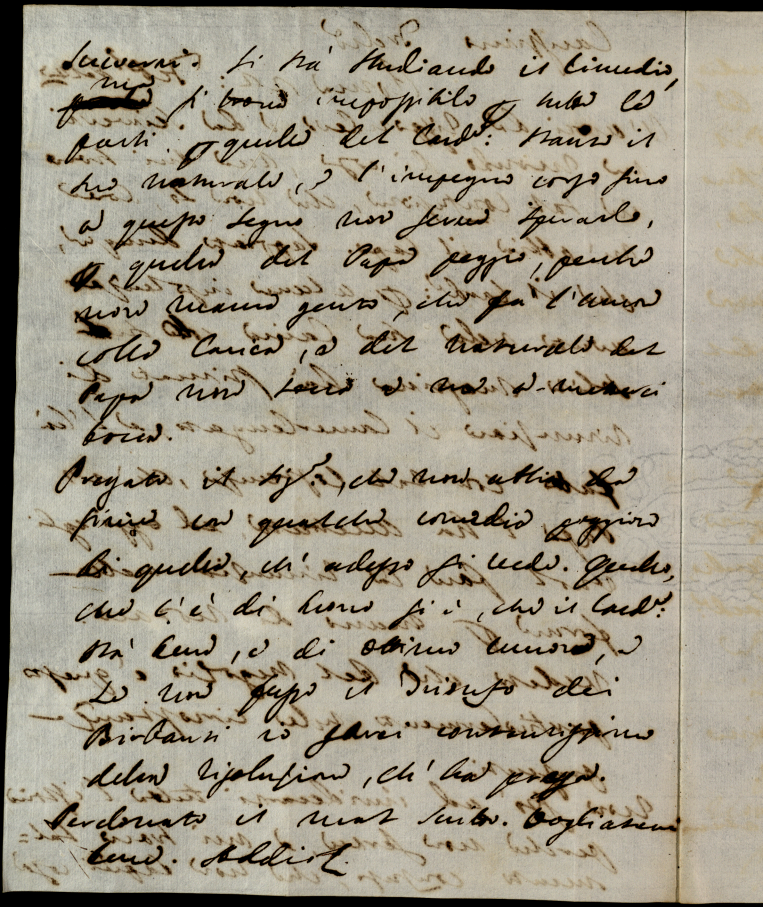 scrivervi. Si stà studiando il rimedio,
ma si trova impossibile p tutte le
parti. p quella del Card.e: stante il
suo naturale, e l'impegno corso sino
a questo segno non serve sperarlo,
p quella del Papa peggio, perché
non manca gente, che fa l'amor
colla Carica, e del naturale del
Papa non serve
bocca.
Pregate il Sig.e, che non abbia da
finire con qualche comedia peggiore
di quella, ch' adesso si vede. Quello,
che c'è di buono si è, che il Card.e:
stà bene, e di ottimo umore, e
se non fusse il Trionfo dei
Birbanti io sarei contentissimo
della risoluzione, ch' ha presa.
Perdonate il mal scritto. Vogliatemi
bene. Addio